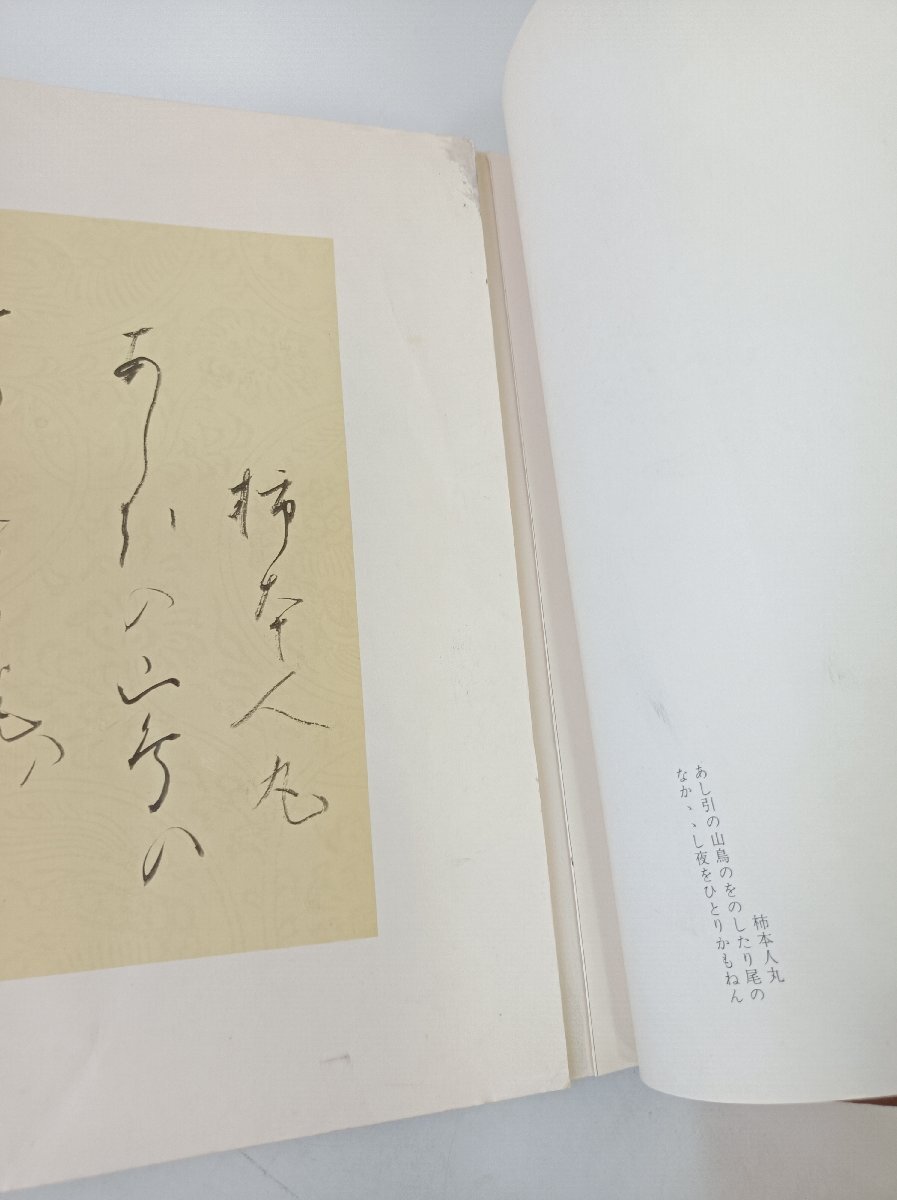 柿本人丸
あし引の山鳥のをのしたり尾の
なかゝゝし夜をひとりかもねん
柿本人丸
あし引の山鳥の